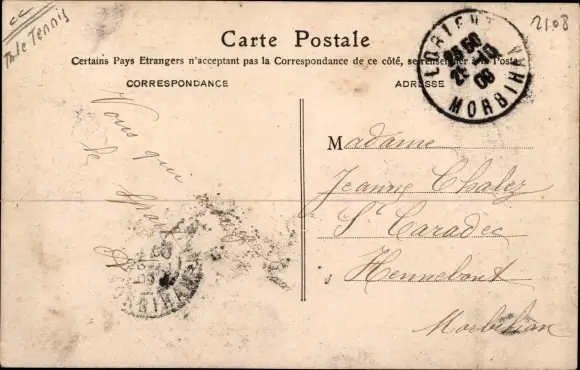 Table Tennis
2108
Carte Postale
Certains Pays Etrangers n'acceptant pas la Correspondance de ce côté, se renseigner à la Poste
CORRESPONDANCE
ADRESSE
LORIENT
MORBIHAN
08
Vous que
le
Madame
Jeanne Chalez
St Caradec
Hennebont
Morbihan
MORBIHAN